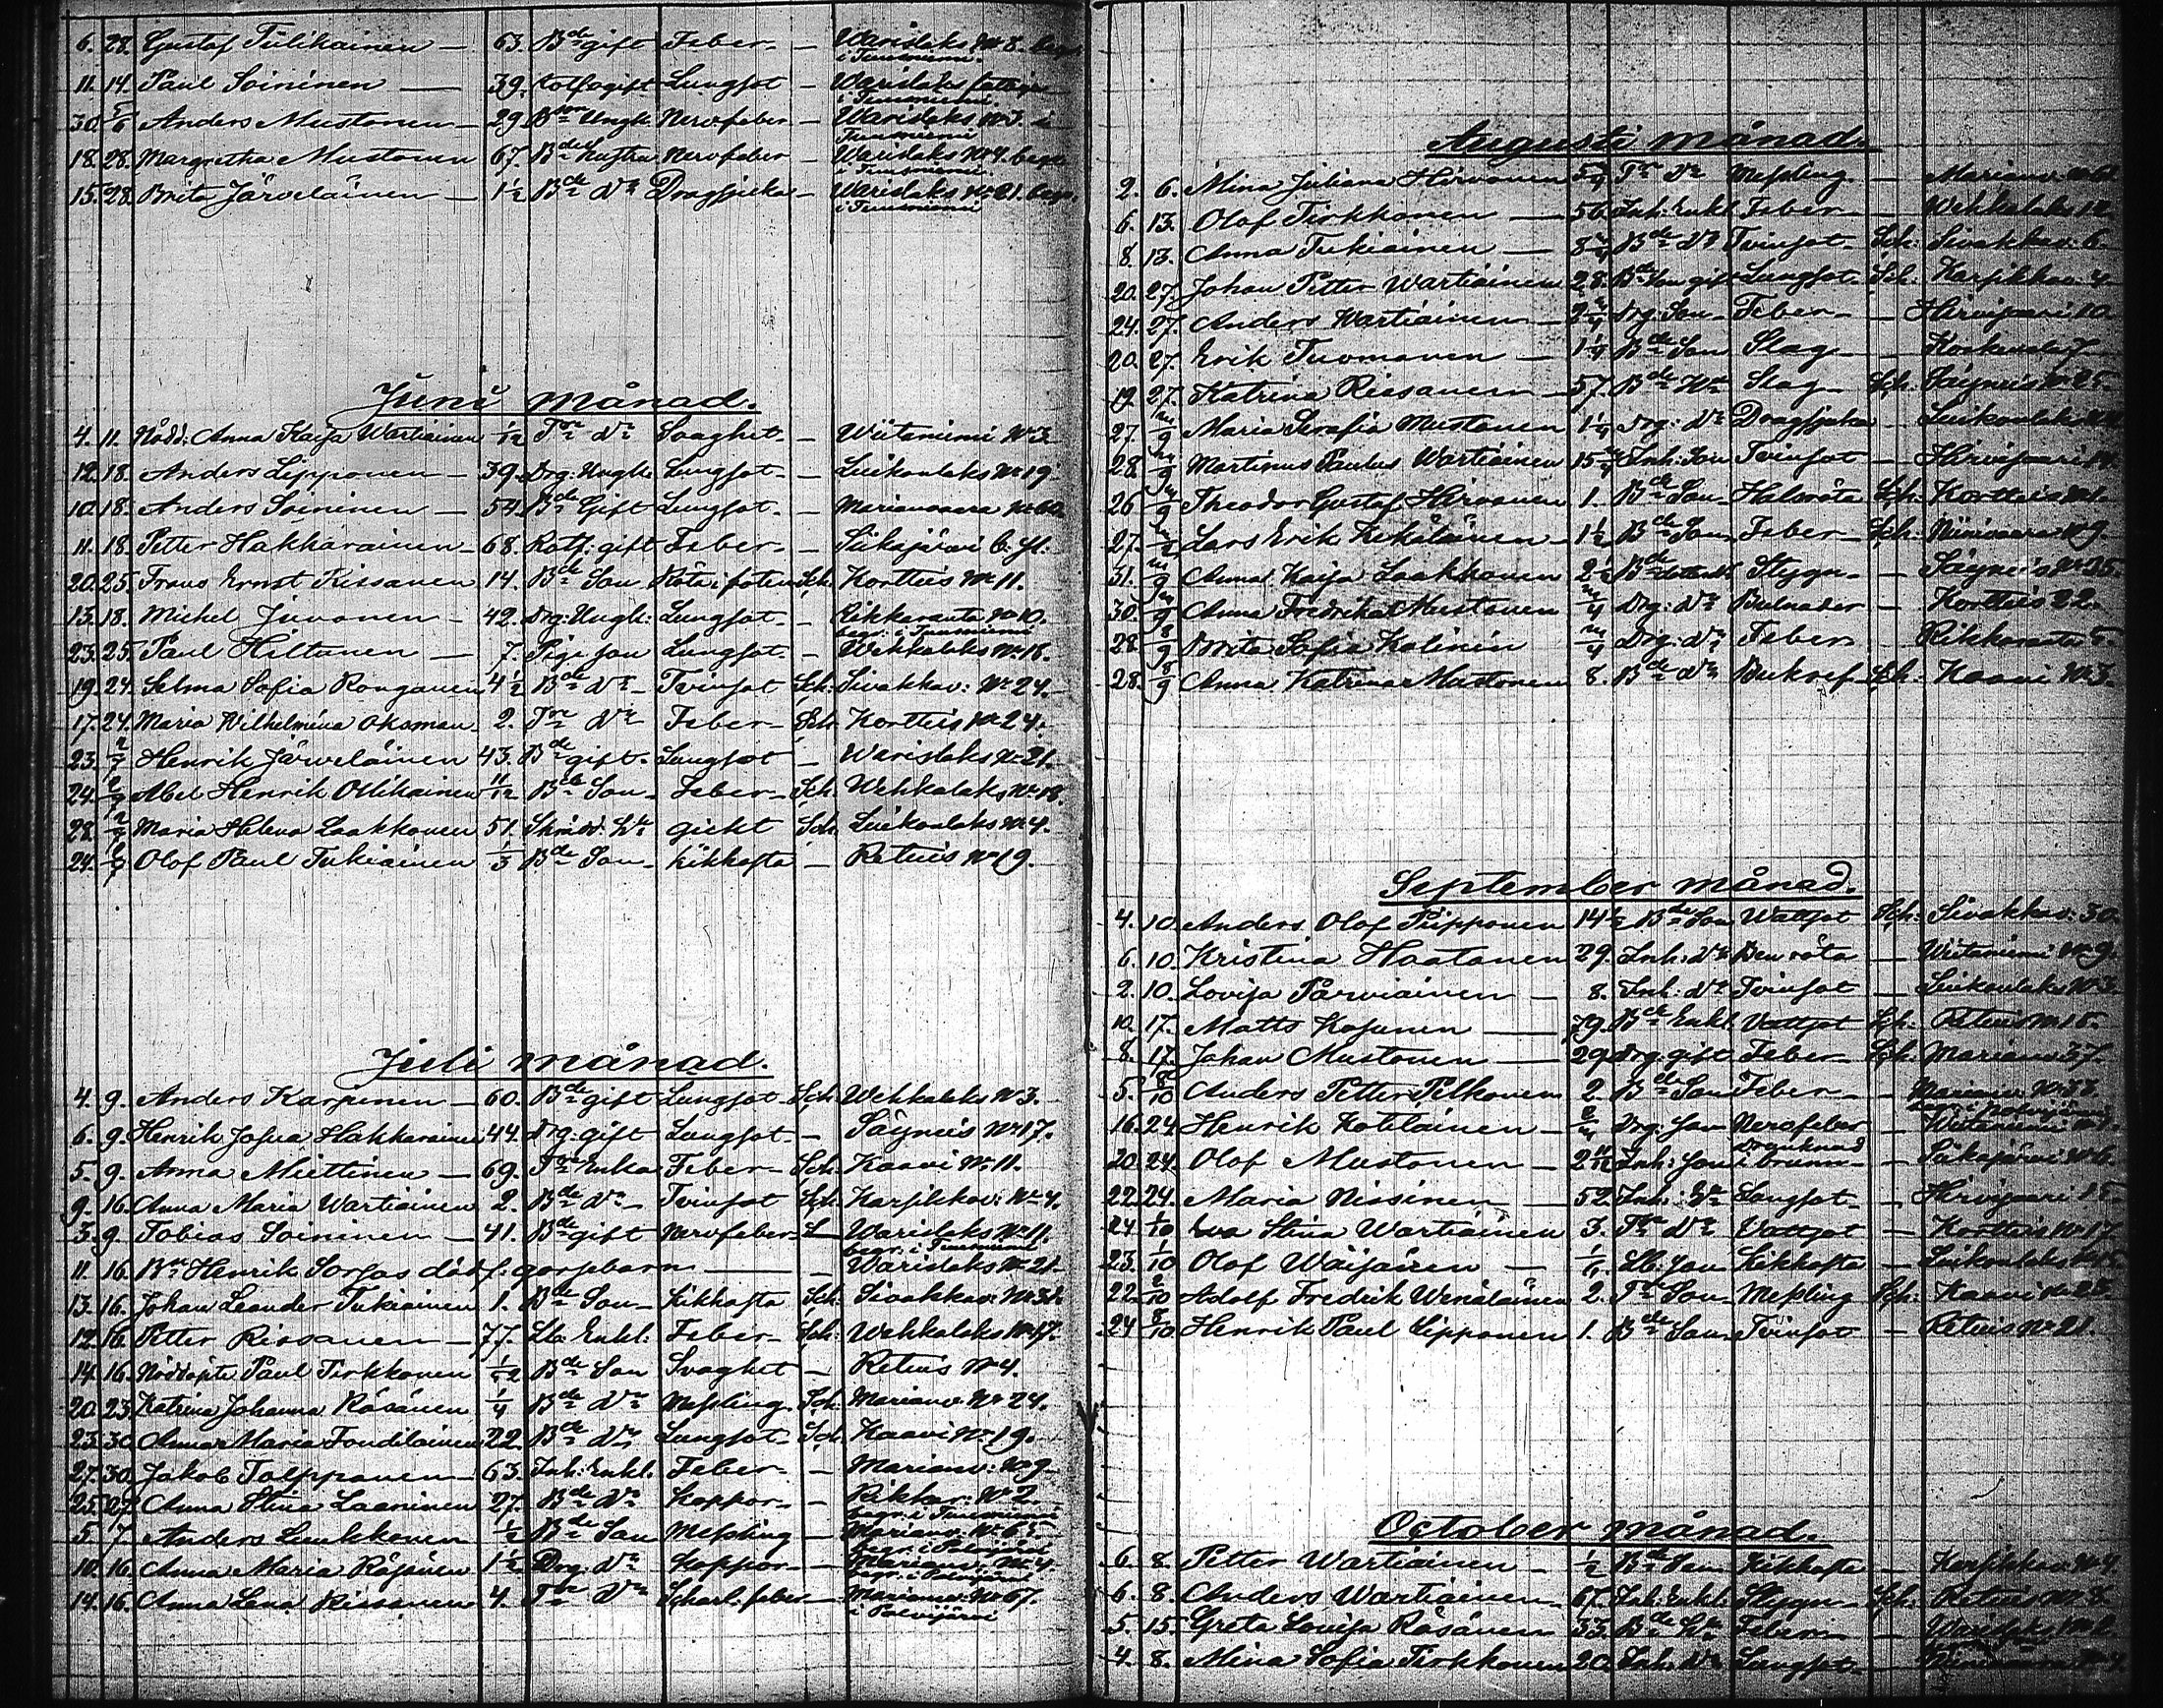 6. 28. Gustaf Tulikainen — 63. Bde gift Feber — Warislaks No 8. begr.
i Tuusniemi.
11. 14. Paul Soininen — 39. gift Lungsot — Warislaks
i Tuusniemi.
30. 5/6 Anders Mustonen — 29. Bson Ungk. Nervfeber — Warislaks No 3. i
Tuusniemi
18. 28. Margretha Mustonen 67. Bde Hustru Nervfeber — Warislaks No 4. begr.
i Tuusniemi.
15. 28. Brita Järveläinen — 1½ Bde Dr Dragsjuka — Warislaks No 21. begr.
i Tuusniemi
Juni månad.
4. 11. Nödd: Anna Kaisa Wartiainen 1/12 Trp Dr Svaghet — Wiitaniemi No 3
12. 18. Anders Lipponen — 39. Drg: Ungk: Lungsot — Luikonlaks No 19.
10. 18. Anders Soininen — 54. Bde Gift Lungsot — Marianvaara No 60.
11. 18. Petter Hakkarainen — 68. Rotf: gift Feber — Siikajärvi 6.
20. 25. Frans Ernst Rissanen 14. Bde Son Röta i foten Sch. Kortteis No 11.
13. 18. Michel Juvonen — 42. Drg: Ungk: Lungsot — Rikkaranta No 10.
begr: i Tuusniemi
23. 25. Paul Hiltunen — 7. Pigs son Lungsot — Wehkalaks No 18.
19. 24. Selma Sofia Ronganen 4½ Bde Dr — Tvinsot Sch. Sivakkav: No 24.
17. 24. Maria Wilhelmina Oksman 2. Trp Dr Feber — Sch. Kortteis No 24.
23. 2/7 Henrik Järveläinen 43. Bde gift Lungsot — Warislaks No 21.
24. 2/7 Abel Henrik Ollikainen 11/12 Bde Son — Feber — Sch. Wehkalaks No 18.
28. 2/7 Maria Helena Laakkonen 51. Skrädd: Hu gickt Sch. Luikonlaks No 4.
24. 1/7 Olof Paul Tukiainen 1/3 Bde Son — kikhosta — Retuis No 19.
Juli månad.
4. 9. Anders Karpinen — 60. Bde gift Lungsot Sch. Wehkalaks No 3.
6. 9. Henrik Josua Hakkarainen 44. Drg: gift Lungsot — Säyneis No 17.
5. 9. Anna Miettinen — 69. Trp Enka Feber — Sch. Kaavi No 11.
9. 16. Anna Maria Wartiainen 2. Bde Dr — Tvinsot Sch. Karsikkov: No 4.
3. 9. Tobias Soininen — 41. Bde gift Nervfeber — Warislaks No 11.
begr: i Tuusniemi
11. 16. Bn Henrik Sorsas dödf: gossebarn — Warislaks No 21.
13. 16. Johan Leander Tukiainen 1. Bde Son — kikhosta Sch. Sivakkav: No 32.
12. 16. Petter Rissanen — 77. Lb Enkl: Feber — Sch. Wehkalaks No 17.
14. 16. Nöddöpte Paul Tirkkonen 1/52 Bde Son Svaghet — Retuis No 4.
20. 23. Katrina Johanna Räsänen 1/4 Bde Dr Messling Sch. Marianv: No 24.
23. 30. Anna Maria Toudilainen 22. Bde Dr Lungsot — Sch. Kaavi No 19.
27. 30. Jakob Tolppanen — 63. Inh: Enkl. Feber — Marianv: No 9.
25. 27. Anna Stina Laaninen 27. Bde Dr koppor — Rikkar: No 2.
begr: i Tuusniemi
5. 7. Anders Leukkonen ½ Bde Son Messling — Marianv. No 65.
begr. i Polvijärvi
10. 16. Anna Maria Räsänen 1½ Drg. Dr koppor — Marianv: No 4.
begr. i Polvijärvi
14. 16. Anna Lena Rissanen 4. Trp Dr Scharl. feber — Marianv: No 67.
i Polvijärvi
Augusti månad.
2. 6. Mina Juliana Hirvonen 5/4 Trp Dr Messling — Marianv. No 62
6. 13. Olof Tirkkonen — 56. Inh: Enkl Feber — Wehkalaks 12
8. 13. Anna Tukiainen — 3/4 Bde Dr Tvinsot — Sch. Sivakkav: 6.
20. 27. Johan Petter Wartiainen 28. Bde Son gift Lungsot — Sch. Karsikkov: 4.
24. 27. Anders Wartiainen — 2/4 Drg. Son — Feber — Hirvisaari 10.
20. 27. Erik Tuomanen — 1¼ Bde Son Slag — Koskenala 7
19. 27. Katrina Rissanen — 57. Bde Hu Slag — Sch. Säyneis No 25.
27. /9 Maria Serafia Mustonen 1¼ Drg: Dr Dragsjuka — Luikonlaks
28. /9 Martinus Paulus Wartiainen 15 Inh: Son Tvinsot — Hirvisaari 14.
26 /9 Theodor Gustaf Hirvonen 1. Bde Son — Halsröta Sch. Kortteis No 1.
27. Lars Erik Kekäläinen 1½ Bde Son Feber — Sch. Niinivaara No 9.
31. /9 Anna Kaisa Laakkonen 2½ Bde Stygn — Säyneis No 25.
30. /9 Anna Fredrika Mustonen ¾ Drg: Dr Bulnader — Kortteis 22.
28. 8/9 Brita Sofia Kolinin ¾ Drg: Dr Feber — Rikkaranta 5.
28. 8/9 Anna Katrina Mustonen 8. Bde Dr Bukref — Sch. Kaavi No 3.
September månad.
4. 10. Anders Olof Piipponen 14½ Bde Son Wattsot Sch. Sivakkav: 30.
6. 10. Kristina Hoatanen 29. Inh: Dr Ben röta — Wiitaniemi No 9.
2. 10. Lovisa Parviainen — 8. Inh: Dr Tvinsot — Luikonlaks No 3.
10. 17. Matts Kosunen — 79. Bde Enkl Vattsot Sch. Retuis No 15.
8. 17. Johan Mustonen — 29. Drg. gift Feber — Sch. Marianv. 37.
5. 8/10 Anders Petter Pelkonen 2. Bde Son Feber — Marianv. No 33.
begr: i Polvijärvi
16. 24. Henrik Kotilainen — Drg. Son Nervfeber — Wiitaniemi
20. 24. Olof Mustonen — 2 11/12 Inh: Son Drunknad
i brunn — Siikajärvi No 6.
22. 24. Maria Nissinen — 52. Inh: Hu Lungsot — Hirvisaari 15.
24 1/10 Eva Stina Wartiainen 3. Trp Dr Vattsot — Kortteis No 17
23. 1/10 Olof Wäisänen — Lb. Son Kikhosta — Luikonlaks
22. 2/10 Adolf Fredrik Wenäläinen 2. Trp Son — Messling Sch. Kaavi No 25.
24 8/10 Henrik Paul Lipponen 1. Bde Son Tvinsot — Retuis No 21.
October månad.
6. 8. Petter Wartiainen — ½ Bde Son Kikhosta — Karsikkov: No 4
6. 8. Anders Wartiainen — 67. Inh: Enkl. Stygn — Sch. Retuis No 8.
5. 15. Greta Lovisa Räsänen 33. Bde Hu Feber — Warislaks No 2.
4. 8. Mina Sofia Tirkkonen 20. Inh. Dr Lungsot —